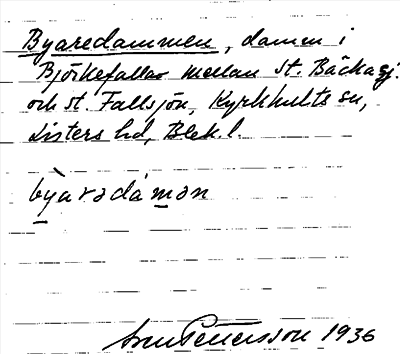 Byaredammen, damm i
Björkefallas mellan St. Bäckasj.
och st. Fallsjön, Kyrkhults sn,
Listers hd, Blek. l.
bỳarədámən
Sven Petersson 1936